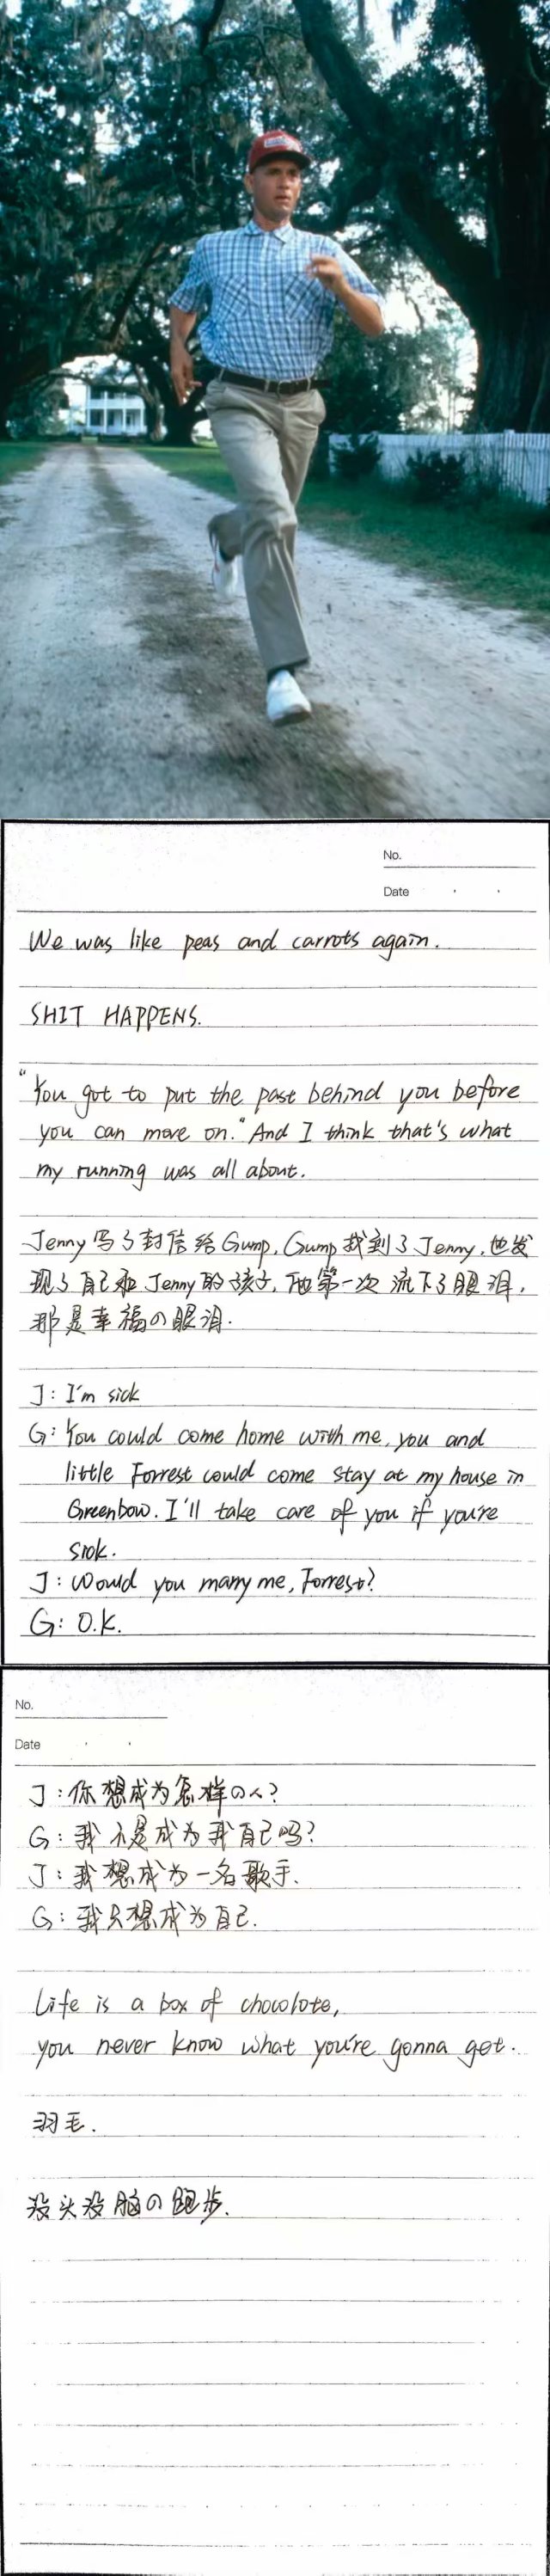 No.
Date
We was like peas and carrots again.
SHIT HAPPENS.
"You got to put the past behind you before
you can move on." And I think that's what
my running was all about.
Jenny写了封信给Gump, Gump找到了Jenny, 他发
现了自己和Jenny的孩子, 他第一次流下了眼泪,
那是幸福の眼泪.
J: I'm sick
G: You could come home with me, you and
little Forrest could come stay at my house in
Greenbow. I'll take care of you if you're
sick.
J: Would you marry me, Forrest?
G: O.K.
No.
Date
J: 你想成为怎样の人?
G: 我不是成为我自己吗?
J: 我想成为一名歌手.
G: 我只想成为自己.
Life is a box of chocolate,
you never know what you're gonna get.
羽毛.
没头没脑の跑步.